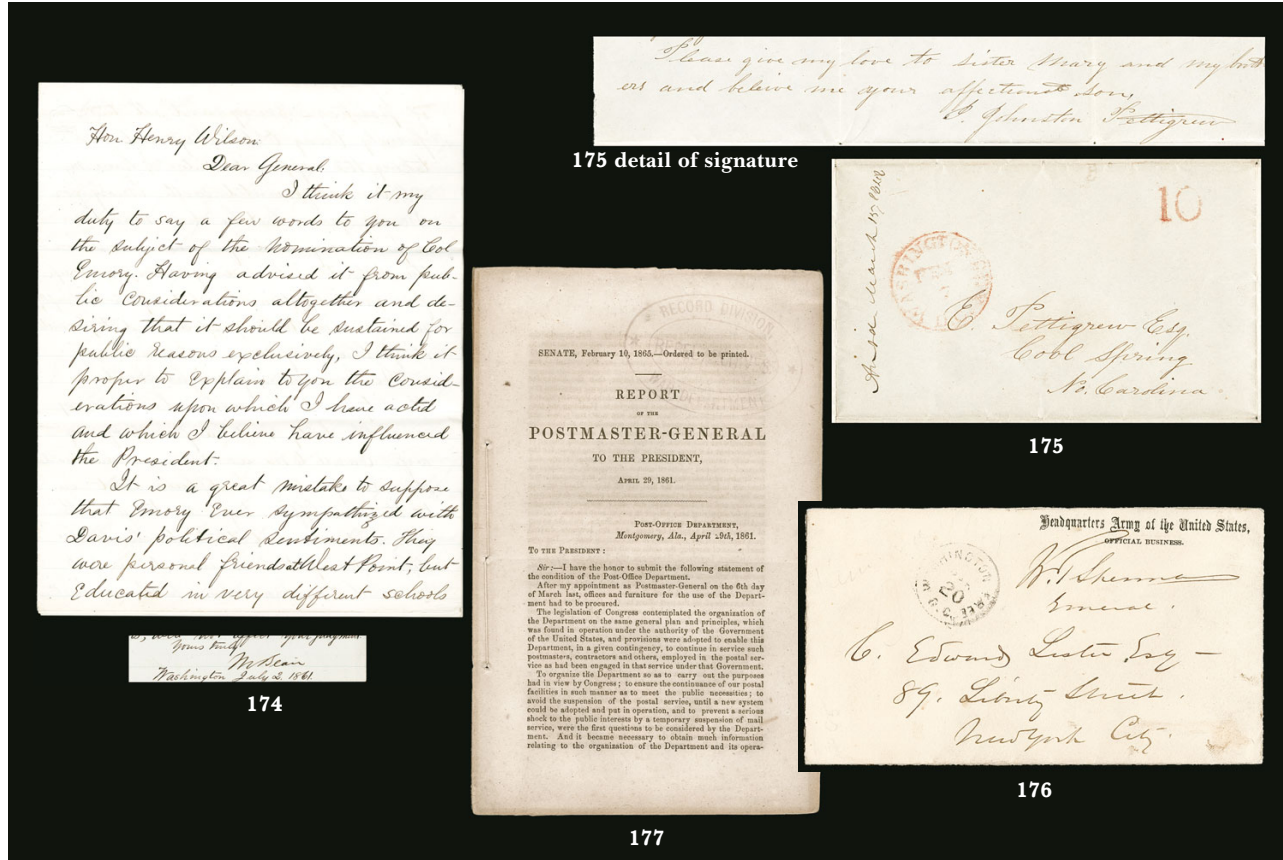 Hon Henry Wilson
Dear General,
I think it my
duty to say a few words to you on
the subject of the nomination of Col
Emory. Having advised it from pub-
lic considerations altogether and de-
siring that it should be sustained for
public reasons exclusively, I think it
proper to explain to you the consid-
erations upon which I have acted
and which I believe have influenced
the President.
It is a great mistake to suppose
that Emory ever sympathized with
Davis' political sentiments. They
were personal friends at West Point, but
Educated in very different schools
your judgment
Yours truly
M Blair
Washington July 2. 1861.
174
Please give my love to sister Mary and my broth
ers and beleive me your affectionate son,
J. Johnston Pettigrew
175 detail of signature
10
WASHINGTON CITY
E. Pettigrew Esq.
Cool Spring
No. Carolina
175
RECORD DIVISION
SENATE, February 10, 1865.—Ordered to be printed.
REPORT
OF THE
POSTMASTER-GENERAL
TO THE PRESIDENT,
APRIL 29, 1861.
POST-OFFICE DEPARTMENT,
Montgomery, Ala., April 29th, 1861.
TO THE PRESIDENT :
Sir :—I have the honor to submit the following statement of
the condition of the Post-Office Department.
After my appointment as Postmaster-General on the 6th day
of March last, offices and furniture for the use of the Depart-
ment had to be procured.
The legislation of Congress contemplated the organization of
the Department on the same general plan and principles, which
was found in operation under the authority of the Government
of the United States, and provisions were adopted to enable this
Department, in a given contingency, to continue in service such
postmasters, contractors and others, employed in the postal ser-
vice as had been engaged in that service under that Government.
To organize the Department so as to carry out the purposes
had in view by Congress ; to ensure the continuance of our postal
facilities in such manner as to meet the public necessities ; to
avoid the suspension of the postal service, until a new system
could be adopted and put in operation, and to prevent a serious
shock to the public interests by a temporary suspension of mail
service, were the first questions to be considered by the Depart-
ment. And it became necessary to obtain much information
relating to the organization of the Department and its opera-
177
Headquarters Army of the United States,
OFFICIAL BUSINESS.
W. T. Sherman
General.
WASHINGTON
20
FREE
C. Edward Lester Esq —
89. Liberty Street.
New York City.
176